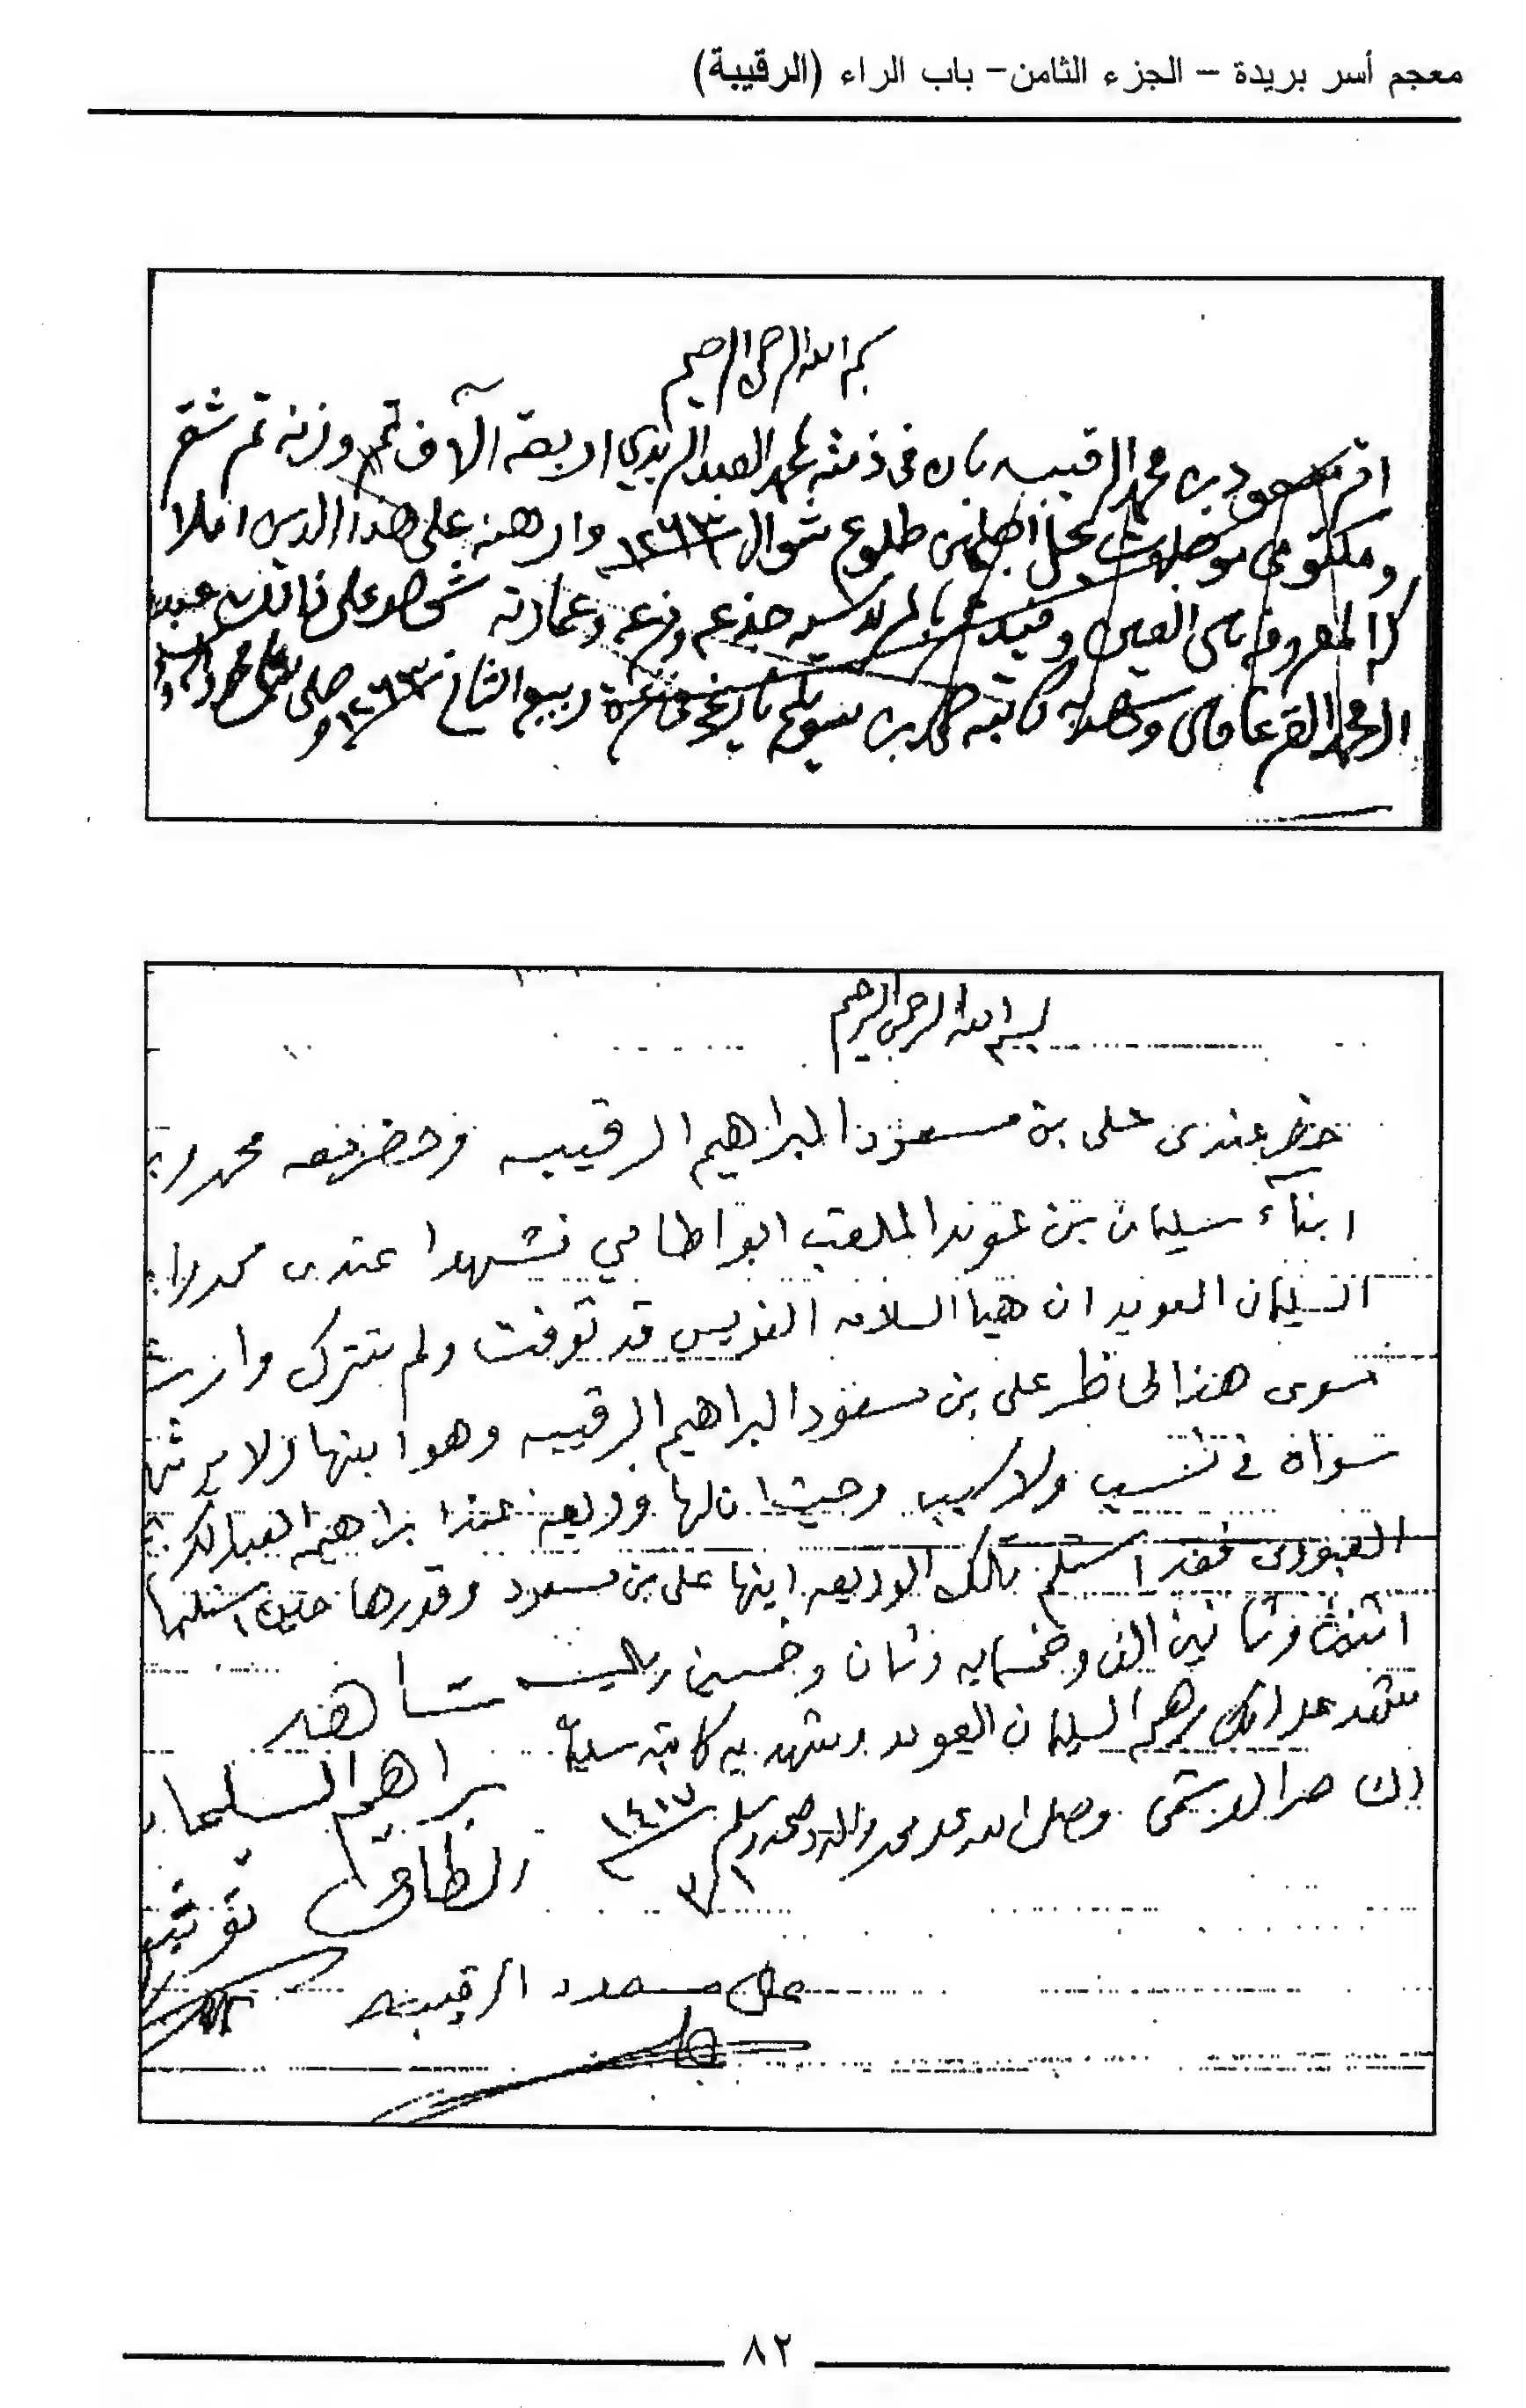 معجم أسر بريدة – الجزء الثامن– باب الراء (الرقيبة)
بسم الله الرحمن الرحيم
اقر مسعود بن محمد الرقيبه بان في ذمته لمحمد العبد الربدي اربعة آلاف تمر وزنه تمر شقر
ومكتومي موجلات يحل اجلهن طلوع شوال ١٢٦٣ وارهنه على هذا الدين
المعروف وفيد جذعه وفرعه وعمارته شهد على ذلك عبد
المحمد القرعاوي وشهد به كاتبه بن سويلم تاريخه غرة ربيع الثاني ١٢٦٣ وصلى الله على محمد وآله
بسم الله الرحمن الرحيم
حضر عندي علي بن مسعود البراهيم الرقيبه وحضر معه محمد
ابناء سليمان بن عويد الملقب ابو اطامي فشهدا عندي محمد
السليمان العويد ان هيا السلامه الفويس قد توفت ولم تترك وارث
سوى هذا الحاظر علي بن مسعود البراهيم الرقيبه وهو ابنها ولا يرثها
سواه في نسب ولا سبب وحيث ان لها وديعه عند براهيم العبدالكريم
العبودي فقد استلم تلك الوديعه ابنها علي بن مسعود وقدرها حين استلمها
اثنين وثمانين الف وخمسمايه وثمان وخمسين ريال شاهد
شهد على ذلك برهيم السليمان العويد وشهد به كاتبه سليمان
وصلى الله على محمد وآله وصحبه وسلم ١٤٠٧/٣/١
براهيم السليمان
علي مسعود الرقيبه
٨٢